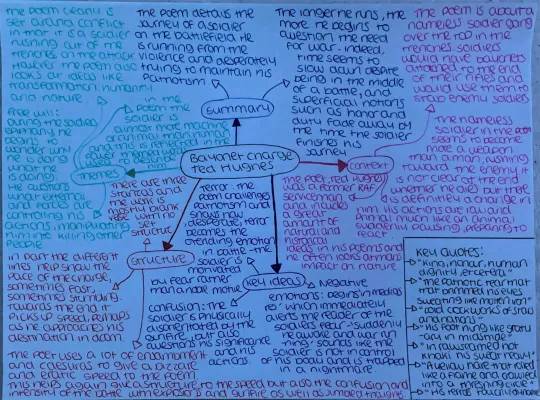 The poem clearly is
set around conflict
in that it is a soldier
rushing out of the
trenches on the attack
However the poem also
looks at ideas like
transformation, humanity
and nature
Free will:
during the soldiers
epiphany he
begins to
wonder why
he is doing
what he
is doing.
He questions
what external
forces are
controlling his
actions, manipulating
him into killing other
people
in the
poem the
soldier is
almost more machine
or animal than human
and this is reflected in the
Themes
The poem details the
journey of a soldier
on the battlefield. He
is running from the
violence and desperately
trying to maintain his
patriotism
Summary
The longer he runs, the
more he begins to
question the need
for war - indeed,
time seems to
slow down despite
being in the middle
of a battle, and
superficial notions
such as honor and
duty fade away by
the time the soldier
finishes his
journey
The poem is about a
nameless soldier going
over the top in the
trenches soldiers
would have bayonets
attached to the end
of their rifles and
would use them to
stab enemy soldiers
The nameless
soldier in the poem
seems to become
more a weapon
than a man, rushing
toward the enemy it
is not clear at the end
whether he dies but there
is definitely a change in
him. His actions are raw and
animal much like an (animal)
suddenly pausing, preparing to
react
Context
The poet, Ted Hughes
was a former RAF
serviceman
and includes
a great
amount of
natural and
historical
ideas in his poems and
he often looks at man's
impact on nature
Bayonet charge
Ted Hughes
There are three
stanzas and
the verse is
mostly blank
verse with no
set
structure
Structure
In part the different
lines help show the
pace of the charge,
sometimes fast,
sometimes stumbling.
Towards the end it
picks up speed perhaps
as he approaches his
destination in death
The poet uses a lot of enjambment
and caesuras to give a bizzare
and eratic speed to the poem
This helps again give a structure, to the speed but also the confusion and
intensity of the battle with explosions and gunfire as well as jumbled thoughts
Terror: the
poem conveys
patriotism and
shows raw,
desperate, terror
becomes the
overriding emotion
in battle - the
soldier is
motivated
by fear rather
than a noble motive
Confusion: the
soldier is physically
disorientated by the
gunfire, but also
questions his significance
and his
actions
Key ideas
Negative
emotions: begins in medias
res which immediately
alerts the reader of the
soldiers fear - "suddenly
he awoke and was run-
ning" sounds like the
soldier is not in control
of his body and is trapped
in a nightmare
Key Quotes:
"King, honour, human
dignity, etcetera"
"The patriotic tear that
had brimmed in his eyes
sweating like molten iron"
"cold clockwork of stars
and nations"
"His foot hung like statu-
ary in midstride"
"raw-seamed hot
khaki his sweat heavy"
"A yellow hare that rolled
like a flame and crawled
into a threshing circle"